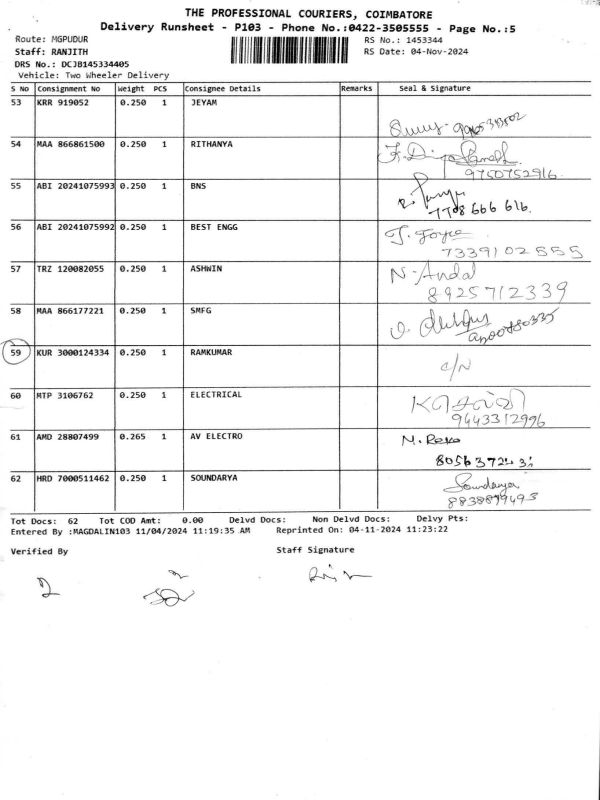 THE PROFESSIONAL COURIERS, COIMBATORE
Delivery Runsheet - P103 - Phone No.:0422-3505555 - Page No.:5
Route: MGPUDUR RS No.: 1453344
Staff: RANJITH RS Date: 04-Nov-2024
DRS No.: DCJB145334405
Vehicle: Two Wheeler Delivery
S No Consignment No Weight PCS Consignee Details Remarks Seal & Signature
53 KRR 919052 0.250 1 JEYAM
54 MAA 866861500 0.250 1 RITHANYA
9750752916
55 ABI 20241075993 0.250 1 BNS
7708 666 616
56 ABI 20241075992 0.250 1 BEST ENGG J. Joyce
7339102555
57 TRZ 120082055 0.250 1 ASHWIN N. Andal
8925712339
58 MAA 866177221 0.250 1 SMFG
59 KUR 3000124334 0.250 1 RAMKUMAR
C/N
60 MTP 3106762 0.250 1 ELECTRICAL
9643312996
61 AMD 28807499 0.265 1 AV ELECTRO
62 HRD 7000511462 0.250 1 SOUNDARYA Soundarya
Tot Docs: 62 Tot COD Amt: 0.00 Delvd Docs: Non Delvd Docs: Delvy Pts:
Entered By :MAGDALIN103 11/04/2024 11:19:35 AM Reprinted On: 04-11-2024 11:23:22
Verified By Staff Signature